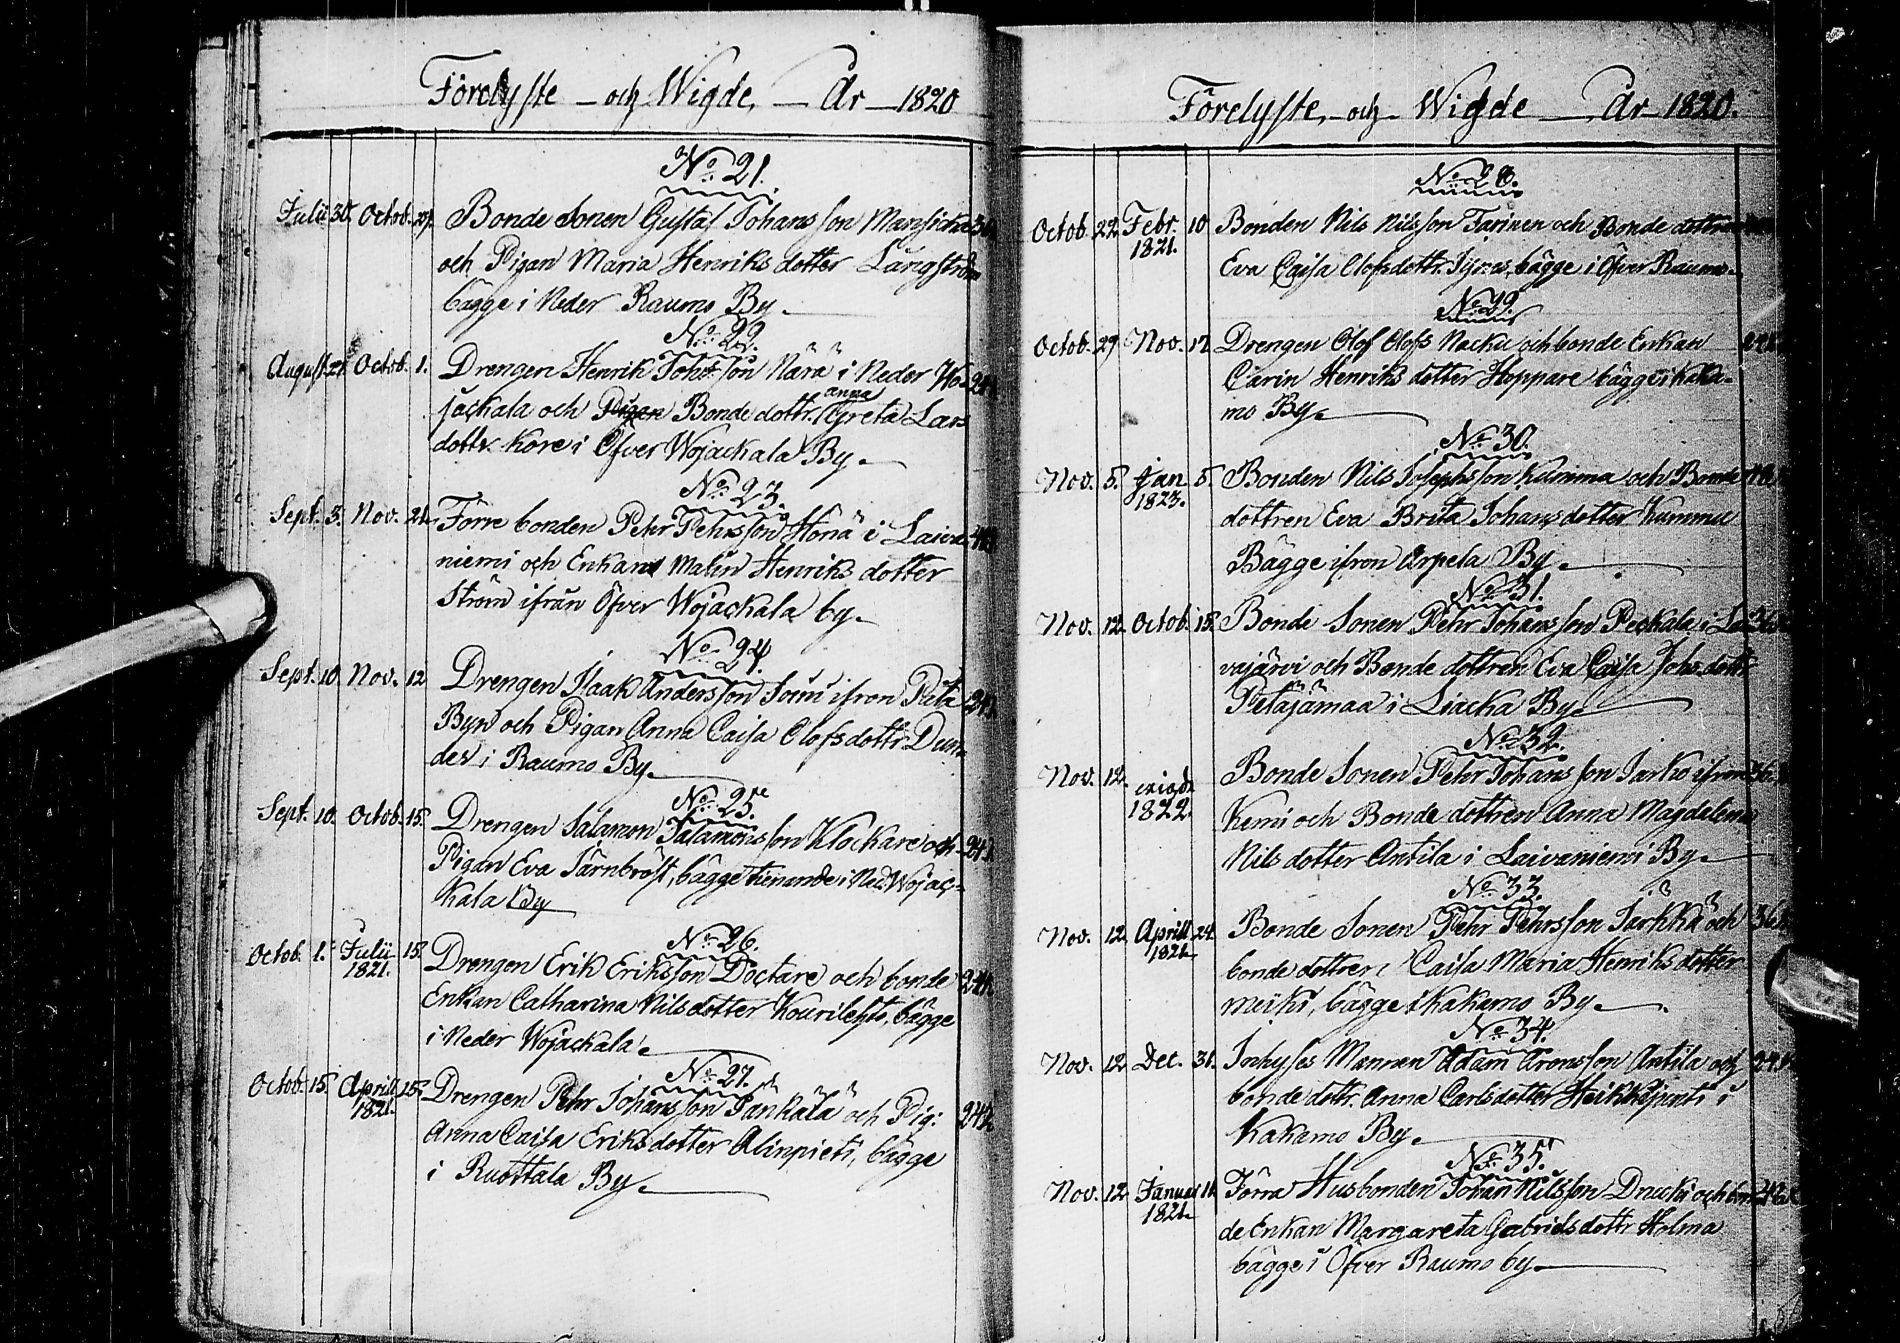 Förelyste - och Wigde, - År - 1820
No 21.
Julii 30. Octob. 29. Bonde Sonen Gustaf Johansson
och Pigan Maria Henriks dotter Långström
bägge i Neder Raumo By.
No 22.
August 27. Octob. 1. Drengen Henrik Johsson Närä i Neder Wo-
jackala och Pigan Bonde dottr. Anna Greta Lars
dottr Kore i Öfver Wojackala By.
No 23.
Sept. 3. Nov. 21. Förre bonden Pehr Pehrsson Höriä i Laiva
niemi och Enkan Malin Henriks dotter
Ström ifrån Öfver Wojackala by.
No 24.
Sept. 10. Nov. 12 Drengen Isaak Andersson ifron
Byn och Pigan Anna Caisa Olofsdottr
i Raumo By.
No 25.
Sept. 10. Octob. 15. Drengen Salamon Salamonsson Klockare och
Pigan Eva Tärnbröst, bägge tienande i Ned. Wojac-
kala By
No 26.
Octob. 1. Julii 15. Drengen Erik Eriksson Doctare och bonde
1821.
Enkan Catharina Nilsdotter Kourilehto, bägge
i Neder Wojackala.
No 27.
Octob. 15. Aprill 15. Drengen Pehr Johansson Pänkälä och Pig:
1821.
Anna Caisa Eriksdotter Alinpieti, bägge
242.
i Ruottala By.
Förelyste, och - Wigde - År - 1820.
No 28.
Octob. 22. Febr. 10 Bonden Nils Nilsson och Bonde dottren
1821.
Eva Caisa Olofsdottr. bägge i Öfver Raumo.
No 29.
Octob. 29 Nov. 17. Drengen Olof Olofs och bonde Enkan
Carin Henriks dotter Hoppare bägge i Kaka-
mo By.
No 30.
Nov. 5. Jan 5. Bonden Nils Josephsson Kumma och Bonde
1823.
dottren Eva Brita Johans dotter Kummu
Bägge ifron Arpela By.
No 31.
Nov. 12. Octob. 15. Bonde Sonen Pehr Johansson Peckala i
vajärvi och Bonde dottren Eva Caisa Johs dottr
Petäjämaa i Liacka By.
No 32.
Nov. 12. Bonde Sonen Pehr Johansson Jarko ifron
1822.
Kemi och Bonde dottren Anna Magdalena
Nils dotter Antila i Laivaniemi By.
No 33.
Nov. 12. Aprill 24. Bonde Sonen Pehr Pehrsson Järkkä och
1821.
bonde dottren Caisa Maria Henriks dotter
meiki, bägge i Kakamo By.
No 34.
Nov. 12. Dec. 31. Inhyses Mannen Adam Aronsson Antila och
bonde dottr. Anna Carlsdotter i
Kakamo By.
No 35.
Nov. 12. Januar 11. Förra Husbonden Johan Nilsson och bon
1821.
de Enkan Margareta Gabrielsdottr Holma
bägge i Öfver Raumo by.